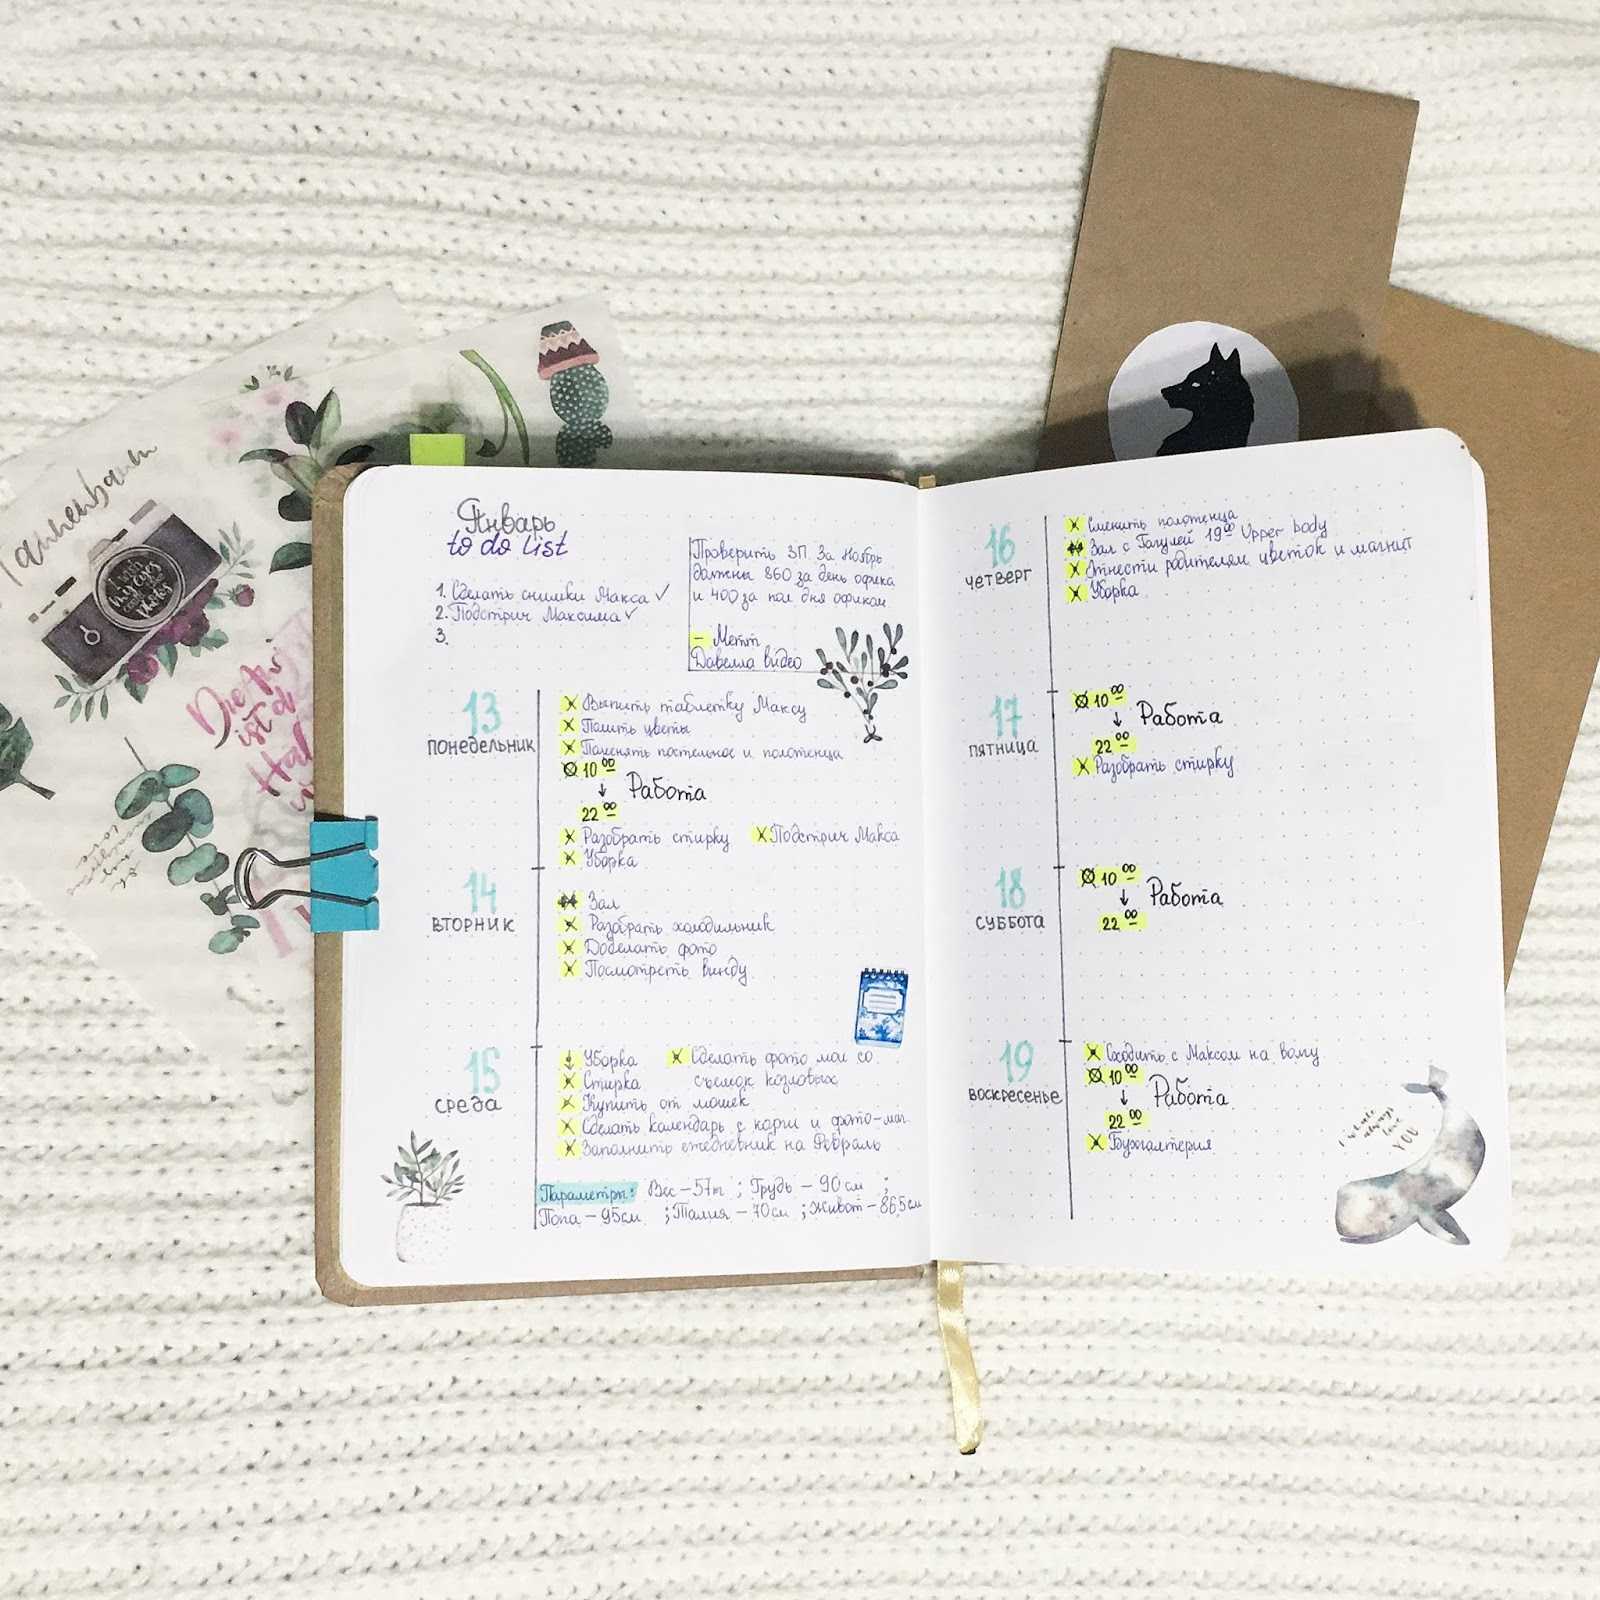 Январь
to do list
1. Сделать снимки Макса ✓
2. Подстрич Максима ✓
3.
Проверить ЗП. За Ноябрь
должны 860 за день офика
и 400 за пол дня офиком
– Метт
Давелла видео
13
понедельник
Выпить таблетку Максу
Полить цветы
Поменять постельное и полотенца
10 00
↓ Работа
22 00
Разобрать стирку Подстрич Макса
Уборка
14
вторник
Зал
Разобрать холодильник
Доделать фото
Посмотреть винду
15
среда
Уборка Сделать фото мои со
Стирка съемок козловых
Купить от мошек
Сделать календарь с корги и фото-маг.
Заполнить ежедневник на Февраль
Параметры: Вес – 57 ; Грудь – 90 см ;
Попа – 95 см ; Талия – 70 см ; Живот – 86,5 см
16
четверг
Сменить полотенца
Зал с 19 00 Upper body
Отнести родителям цветок и магнит
Уборка
17
пятница
10 00
↓ Работа
22 00
Разобрать стирку
18
суббота
10 00
↓ Работа
22 00
19
воскресенье
Сходить с Максом на
10 00
↓ Работа
22 00
Бухгалтерия
always
love
YOU
Tannenbaum